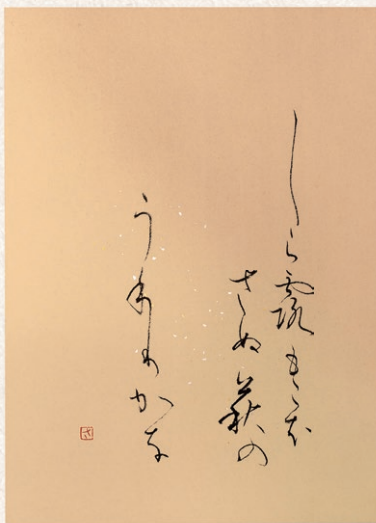 しら露もこほ
さぬ萩の
うねりかな